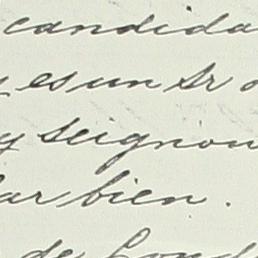 candida
es un Sr
y seignou
ar bien.
de Lond